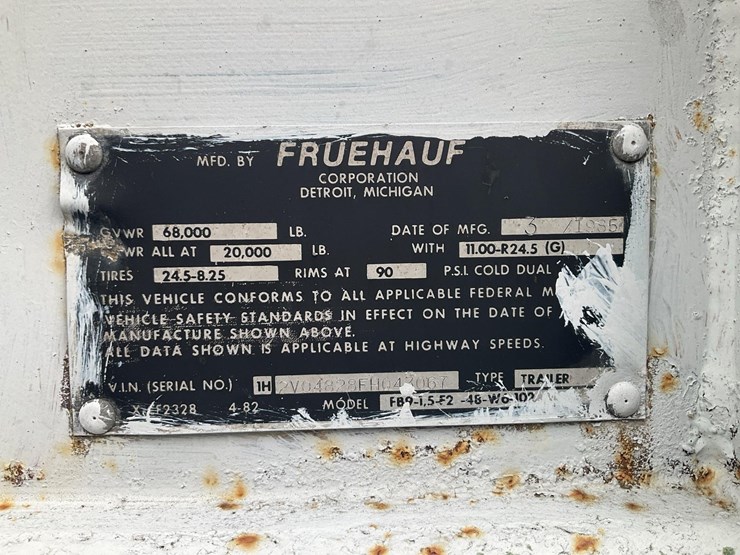 MFD. BY FRUEHAUF
CORPORATION
DETROIT, MICHIGAN
GVWR 68,000 LB. DATE OF MFG. 3 /1985
WR ALL AT 20,000 LB. WITH 11.00-R24.5 (G)
TIRES 24.5-8.25 RIMS AT 90 P.S.I. COLD DUAL
THIS VEHICLE CONFORMS TO ALL APPLICABLE FEDERAL M
VEHICLE SAFETY STANDARDS IN EFFECT ON THE DATE OF
MANUFACTURE SHOWN ABOVE.
ALL DATA SHOWN IS APPLICABLE AT HIGHWAY SPEEDS.
V.I.N. (SERIAL NO.) 1H TYPE TRAILER
4-82 MODEL FB9-1,5-F2 -48-W6-102